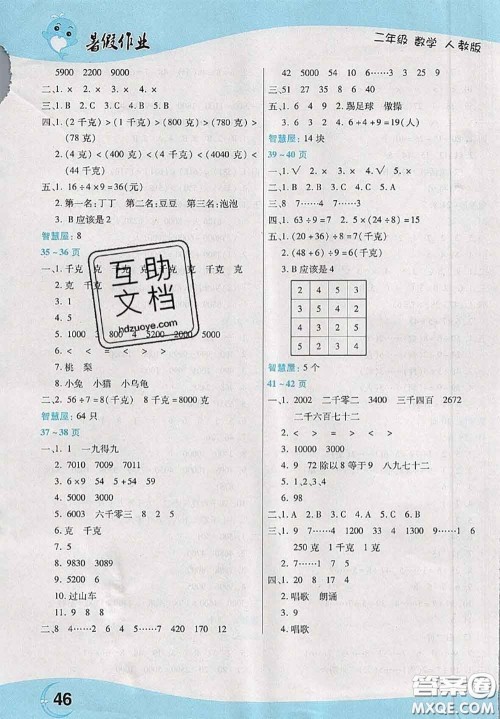 暑假作业
二年级 数学 人教版
5900 2200 9000
二、1.× 2.× 3.√
三、1.B 2.C 3.B 4.C
四、1.(2千克)>(1千克)>(800克)>(780克)>
(78克)
2.(4克)<(400克)<(4千克)<(4040克)<
(44千克)
五、1.16÷4×9=36(元)
2.第一名:丁丁 第二名:豆豆 第三名:泡泡
3.B应该是2
智慧屋:8
35~36页
一、1.千克 克
2.克 千克
3.9
4.1
5.1000 3 8 4 5200 2000 5000
7.桃 梨
8.小兔 小猫 小乌龟
二、2.56÷7=8(千克)
智慧屋:64只
37~38页
一、1.1 一九得九
2.7010 7009 7011
3.6×9 54 54÷6
4.5000
5.2063 六千零三 8 2 5
6.克 千克
7.5
8.9830 3089
9.5200
10.过山车
11.9 8 8
二、8 4……2 7 6……2 420 170 12
46
42 5 60 6……5 5400 6 4……4
三、51 27 8 35 16 35
五、1.6 8 5 2.踢足球 做操
3.9+6+4=19(人)
智慧屋:14块
39~40页
一、1.√ 2.× 3.× 4.× 5.√
二、1.B 2.A 3.B 4.C 5.A
三、8 7……4 7……3
四、1.63÷9=7 2.5×(24÷8)=15
3.(48+6)÷9=6
3.B应该是4
2 4 5 3
5 3 2 4
3 2 4 5
4 5 3 2
智慧屋:5个
41~42页
一、1.2002 二千零二 三千四百 2672
二千六百七十二
2.< > < = > <
3.7
4.9 72除以8等于9 八九七十二
6.98
二、1.A 2.B 3.C 4.A 5.B
三、1.9 7……3 6……3 49
四、1.
2.唱歌 朗诵
4.唱歌
互助文档
hdzuoye.com
答案圈
MXQE.COM